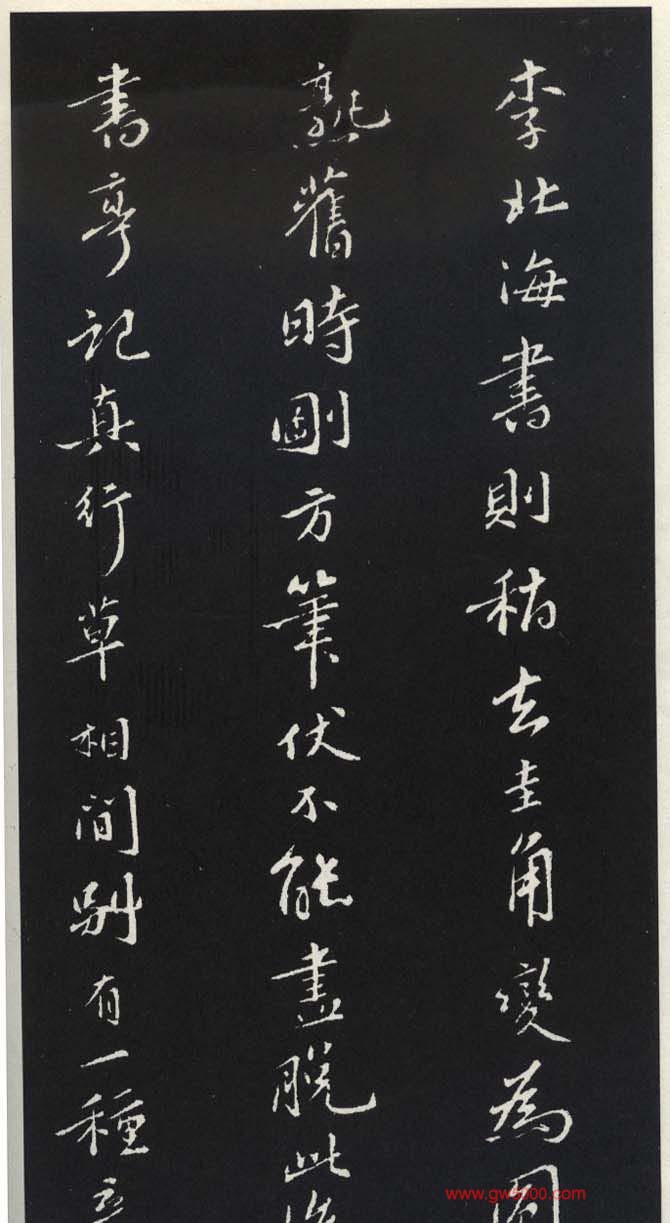 李北海書則稍去圭角變為圓
熟舊時剛方筆伏不能盡脫此
書亭記真行草相間別有一種
www.gw5000.com